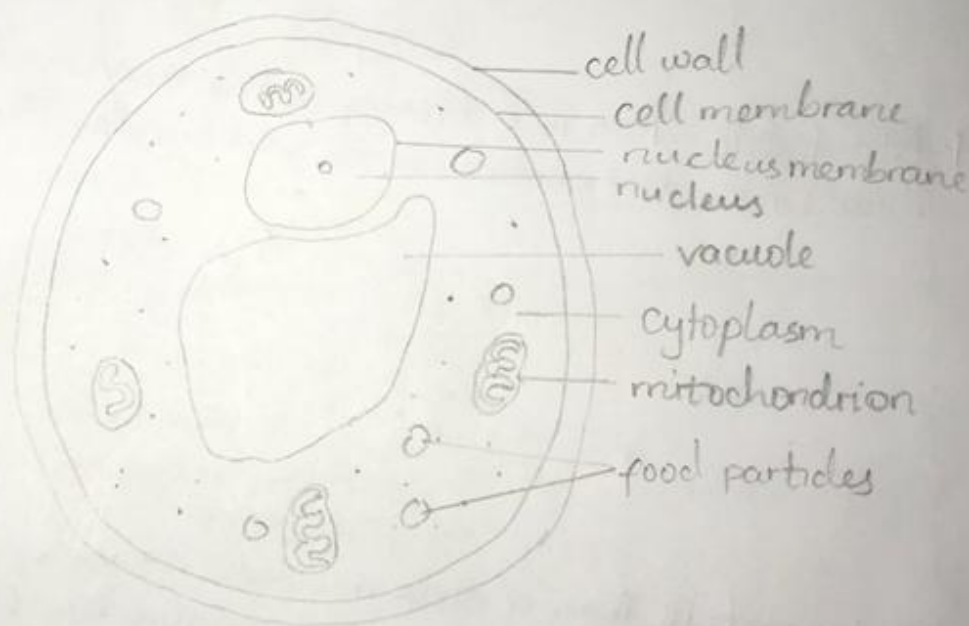 cell wall
cell membrane
nucleus membrane
nucleus
vacuole
cytoplasm
mitochondrion
food particles